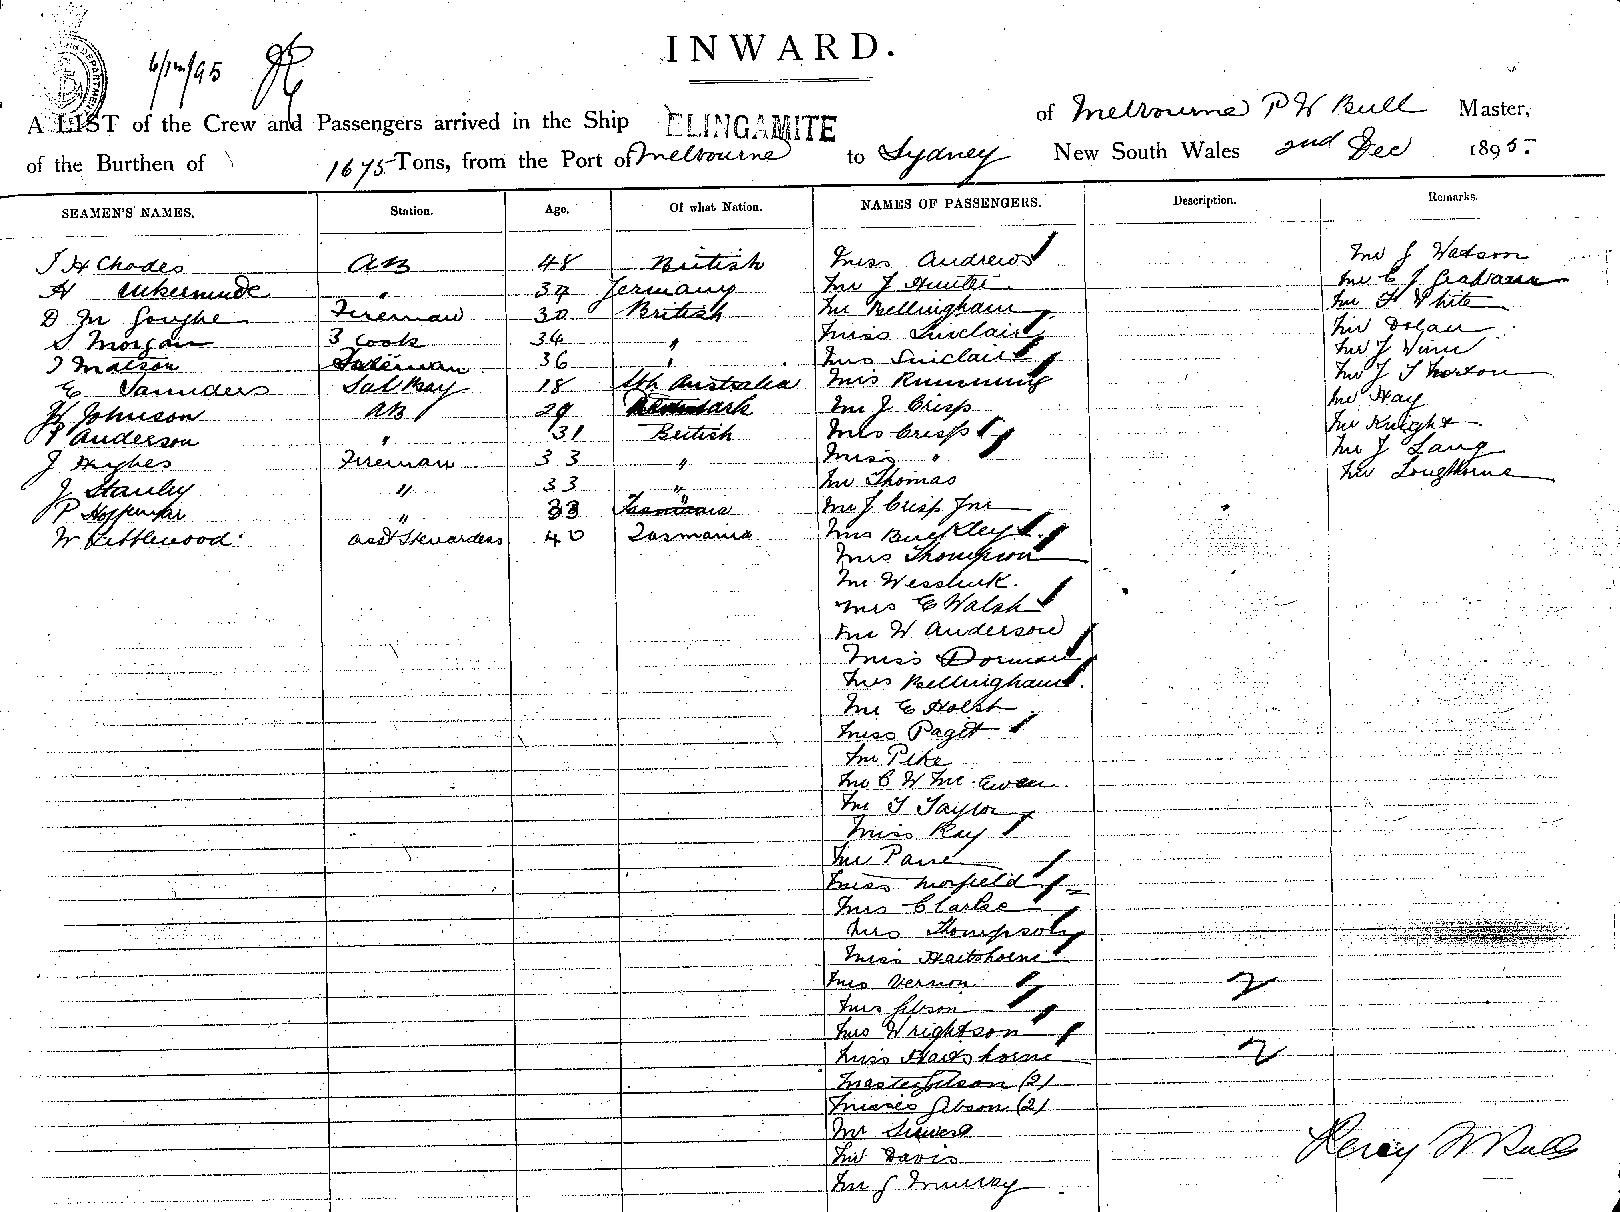 INWARD.
6/12/95
A LIST of the Crew and Passengers arrived in the Ship ELINGAMITE of Melbourne P W Bull Master,
of the Burthen of 1675 Tons, from the Port of Melbourne to Sydney New South Wales 2nd Dec 1895
SEAMEN'S NAMES. Station. Age. Of what Nation. NAMES OF PASSENGERS. Description. Remarks.
J H Chodes AB 48 British Miss Andrews Mr J Watson
H 39 Germany Mr J Hunter Mr C J Grahame
D Mc Goughe Fireman 30 British Mr Bellingham Mr F White
S Morgan 3 Cook 34 " Miss Sinclair Mr Dolan
J Matson 36 " Mrs Sinclair Mr J
E Saunders Sal Boy 18 Sth Australia Mrs Mr J S Norton
H Johnson AB 29 Mr J Crisp Mr Hay
P Anderson " 31 British Mrs Crisp Mr Knight
J Hughes Fireman 33 " Miss " Mr J Lang
J Stanley " 33 " Mr Thomas Mr Loughlorne
P " 33 " Mr J Crisp Jnr
W Kibblewood asst Stewardess 40 Tasmania Mrs Buckley
Mrs Thompson
Mr
Mrs E Walsh
Mr W Anderson
Miss Dorman
Mrs Bellingham
Mr E Holst
Miss Paget
Mr Pike
Mr C W Mc Ewen
Mr T Taylor
Miss Ray
Mr
Miss Morfield
Mrs Clarke
Mrs Thompson
Miss Hartshorne
Mrs Vernon 2
Mrs Gibson
Mrs Wrightson
Miss Hartshorne 2
Master Gibson (2)
Misses Gibson (2)
Mr
Mr Davis
Mr J Murray
Percy W Bull